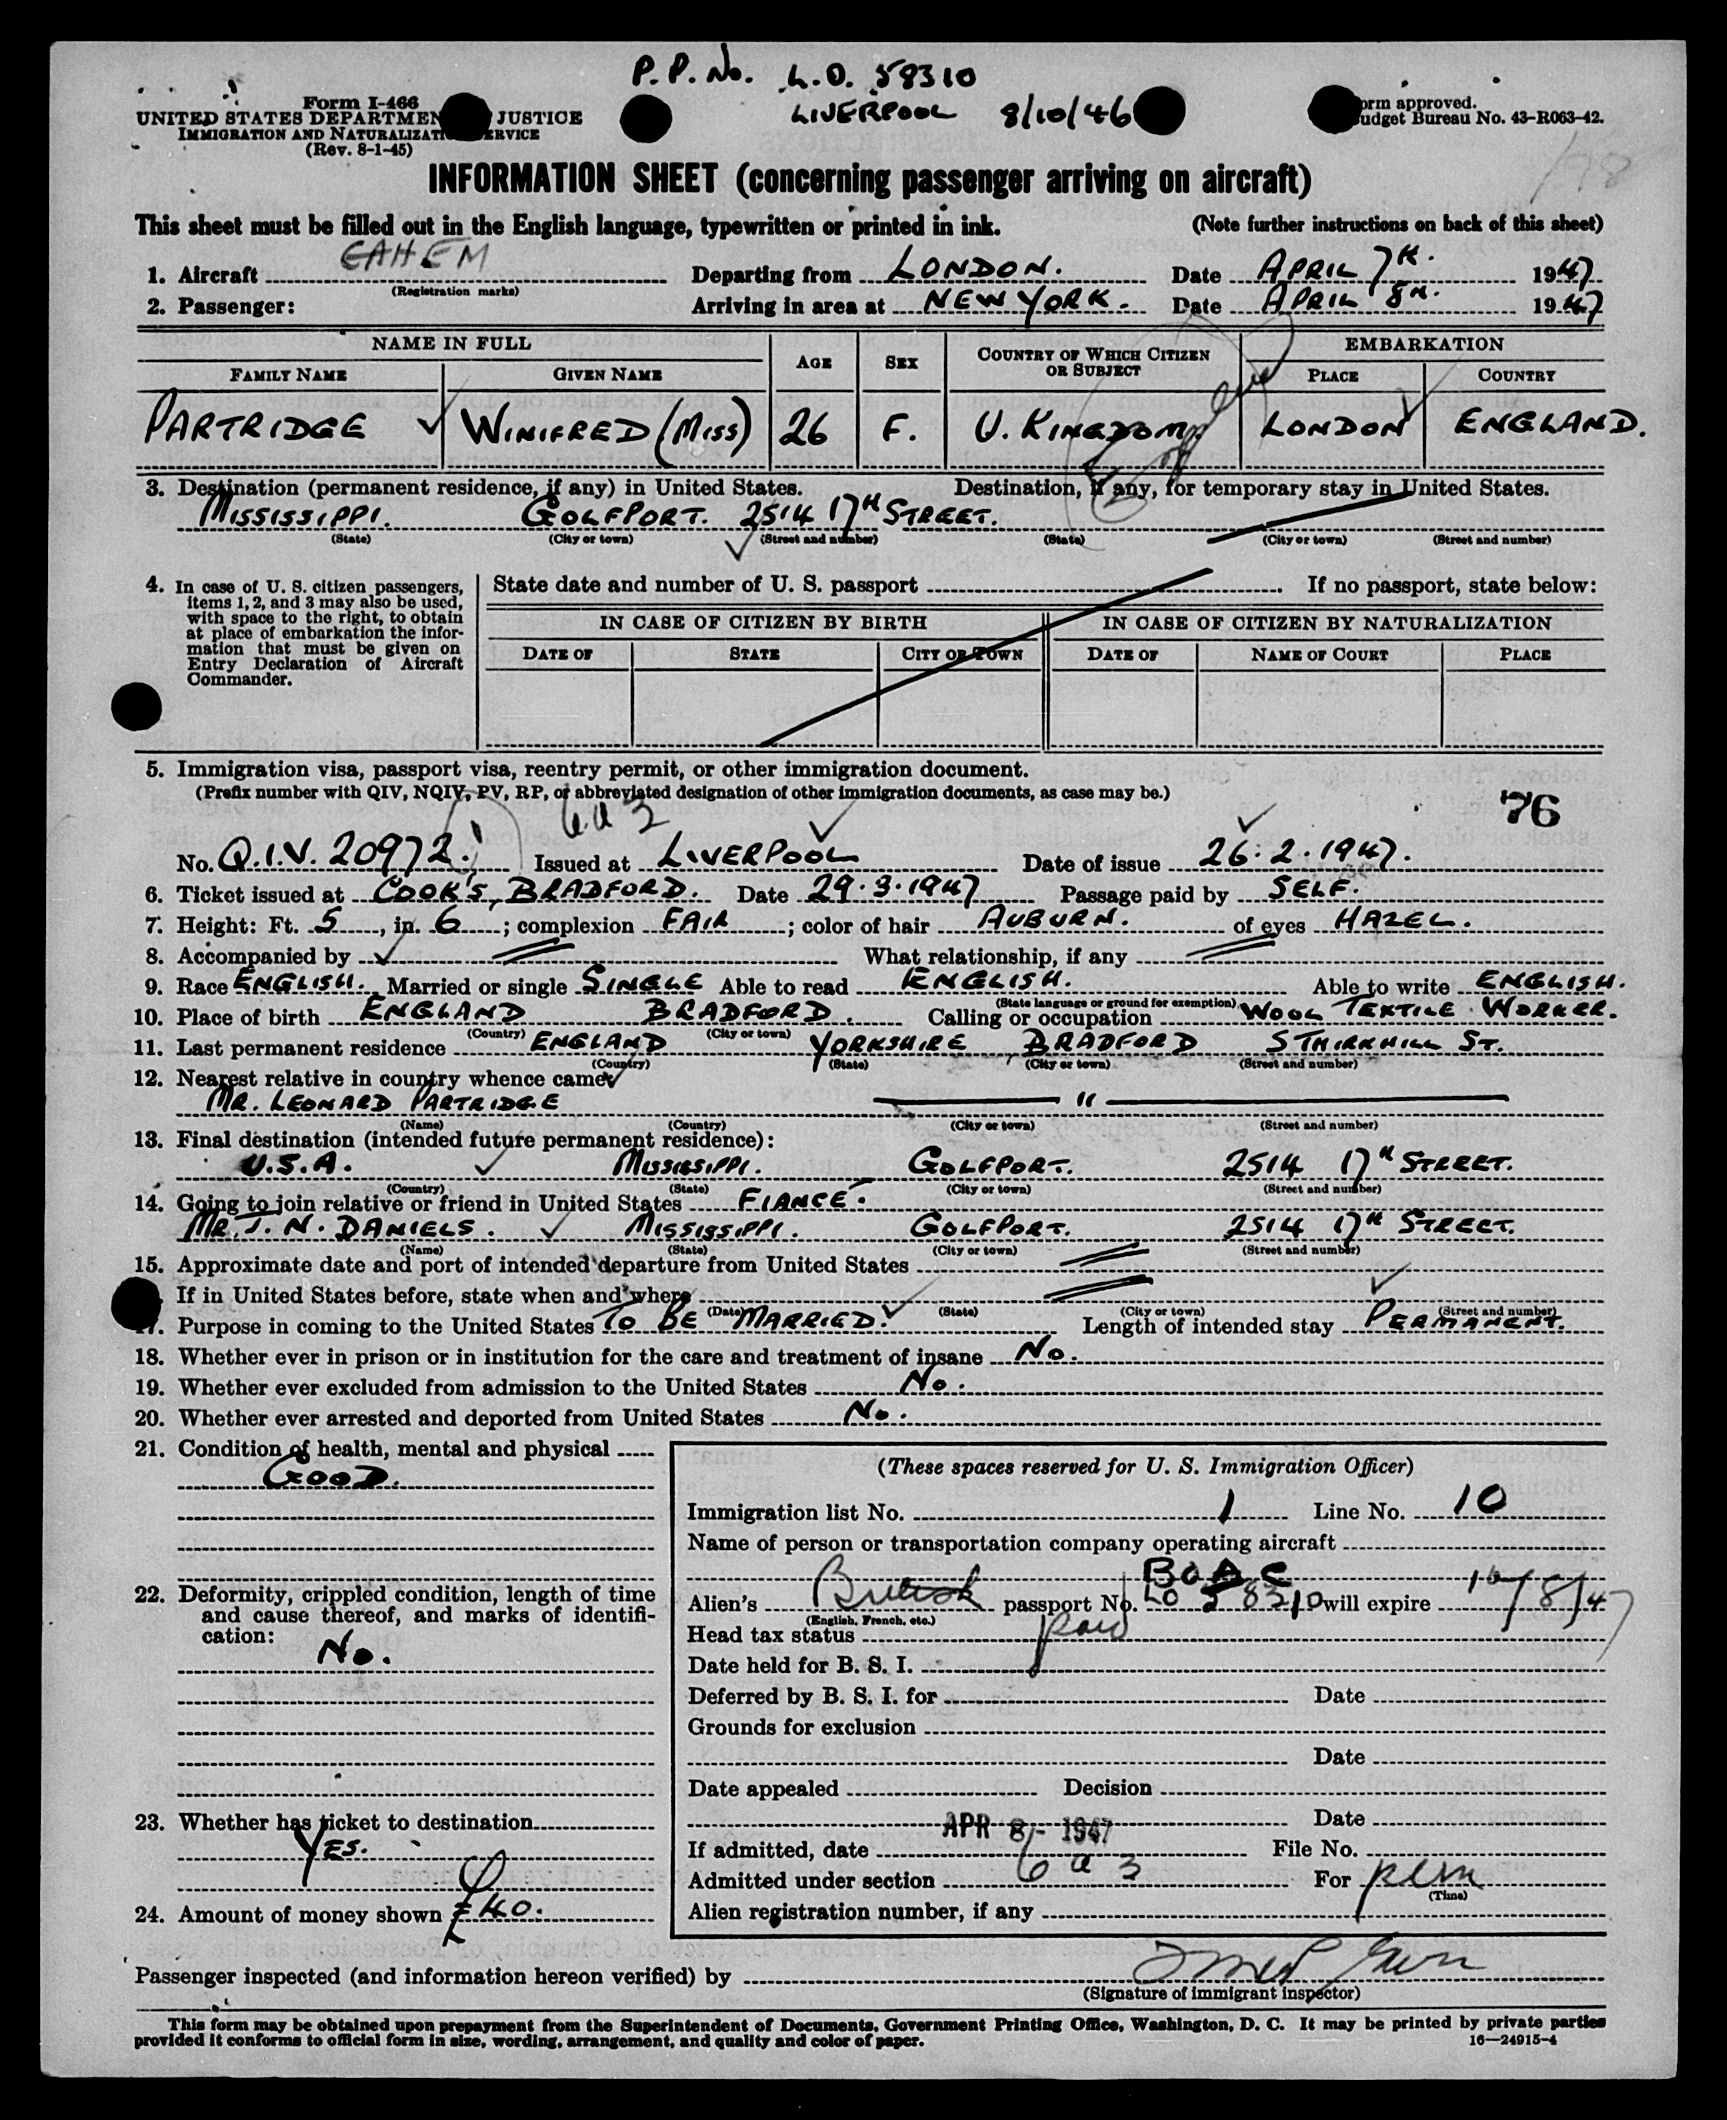 P.P. No. L.O. 58310
LIVERPOOL 8/10/46
Form I-466
UNITED STATES DEPARTMEN JUSTICE
IMMIGRATION AND NATURALIZATI ERVICE
(Rev. 8-1-45)
orm approved.
udget Bureau No. 43-R063-42.
INFORMATION SHEET (concerning passenger arriving on aircraft)
This sheet must be filled out in the English language, typewritten or printed in ink. (Note further instructions on back of this sheet)
1. Aircraft GAHEM Departing from LONDON. Date APRIL 7TH. 1947
(Registration marks)
2. Passenger: Arriving in area at NEW YORK. Date APRIL 8TH. 1947
NAME IN FULL AGE SEX COUNTRY OF WHICH CITIZEN OR SUBJECT EMBARKATION
FAMILY NAME GIVEN NAME PLACE COUNTRY
PARTRIDGE WINIFRED (MISS) 26 F. U. KINGDOM. LONDON ENGLAND.
3. Destination (permanent residence, if any) in United States. Destination, if any, for temporary stay in United States.
MISSISSIPPI. GOLFPORT. 2514 17TH STREET.
(State) (City or town) (Street and number) (State) (City or town) (Street and number)
4. In case of U. S. citizen passengers, items 1, 2, and 3 may also be used, with space to the right, to obtain at place of embarkation the information that must be given on Entry Declaration of Aircraft Commander.
State date and number of U. S. passport If no passport, state below:
IN CASE OF CITIZEN BY BIRTH IN CASE OF CITIZEN BY NATURALIZATION
DATE OF STATE CITY OR TOWN DATE OF NAME OF COURT PLACE
5. Immigration visa, passport visa, reentry permit, or other immigration document.
(Prefix number with QIV, NQIV, PV, RP, or abbreviated designation of other immigration documents, as case may be.)
76
6 a 3
No. Q.I.V. 20972. Issued at LIVERPOOL Date of issue 26.2.1947.
6. Ticket issued at COOK'S, BRADFORD. Date 29.3.1947 Passage paid by SELF.
7. Height: Ft. 5, in. 6; complexion FAIR; color of hair AUBURN. of eyes HAZEL.
8. Accompanied by What relationship, if any
9. Race ENGLISH. Married or single SINGLE Able to read ENGLISH. Able to write ENGLISH.
(State language or ground for exemption)
10. Place of birth ENGLAND BRADFORD. Calling or occupation WOOL TEXTILE WORKER.
(Country) (City or town)
11. Last permanent residence ENGLAND YORKSHIRE, BRADFORD 5 THIRKHILL ST.
(Country) (State) (City or town) (Street and number)
12. Nearest relative in country whence came
MR. LEONARD PARTRIDGE "
(Name) (Country) (City or town) (Street and number)
13. Final destination (intended future permanent residence):
U.S.A. MISSISSIPPI. GOLFPORT. 2514 17TH STREET.
(Country) (State) (City or town) (Street and number)
14. Going to join relative or friend in United States FIANCE.
MR. J. N. DANIELS. MISSISSIPPI. GOLFPORT. 2514 17TH STREET.
(Name) (State) (City or town) (Street and number)
15. Approximate date and port of intended departure from United States
If in United States before, state when and where
(Date) (State) (City or town) (Street and number)
17. Purpose in coming to the United States TO BE MARRIED. Length of intended stay PERMANENT.
18. Whether ever in prison or in institution for the care and treatment of insane No.
19. Whether ever excluded from admission to the United States No.
20. Whether ever arrested and deported from United States No.
21. Condition of health, mental and physical
GOOD.
22. Deformity, crippled condition, length of time and cause thereof, and marks of identification:
No.
23. Whether has ticket to destination
YES.
24. Amount of money shown £40.
(These spaces reserved for U. S. Immigration Officer)
Immigration list No. 1 Line No. 10
Name of person or transportation company operating aircraft
BOAC
Alien's British passport No. LO 58310 will expire 10/8/47
(English, French, etc.)
Head tax status paid
Date held for B. S. I.
Deferred by B. S. I. for Date
Grounds for exclusion
Date
Date appealed Decision
Date
APR 8 - 1947
If admitted, date File No.
Admitted under section 6 a 3 For perm
(Time)
Alien registration number, if any
Passenger inspected (and information hereon verified) by
(Signature of immigrant inspector)
This form may be obtained upon prepayment from the Superintendent of Documents, Government Printing Office, Washington, D. C. It may be printed by private parties
provided it conforms to official form in size, wording, arrangement, and quality and color of paper. 16—24915-4